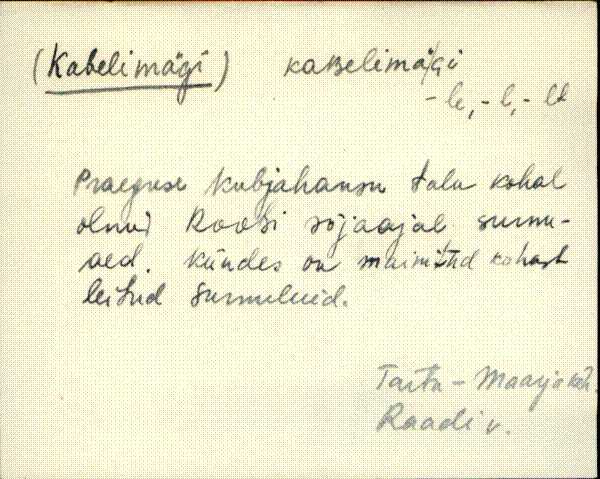 (Kabelimägi) kaBelimä͔gi
-le, -l, -lt
Praeguse Kubjahansu talu kohal
olnud Rootsi sõjaajal surnu-
aed. Kündes on mainitud kohast
leitud surnuluid.
Tartu-Maarja kih.
Raadi v.